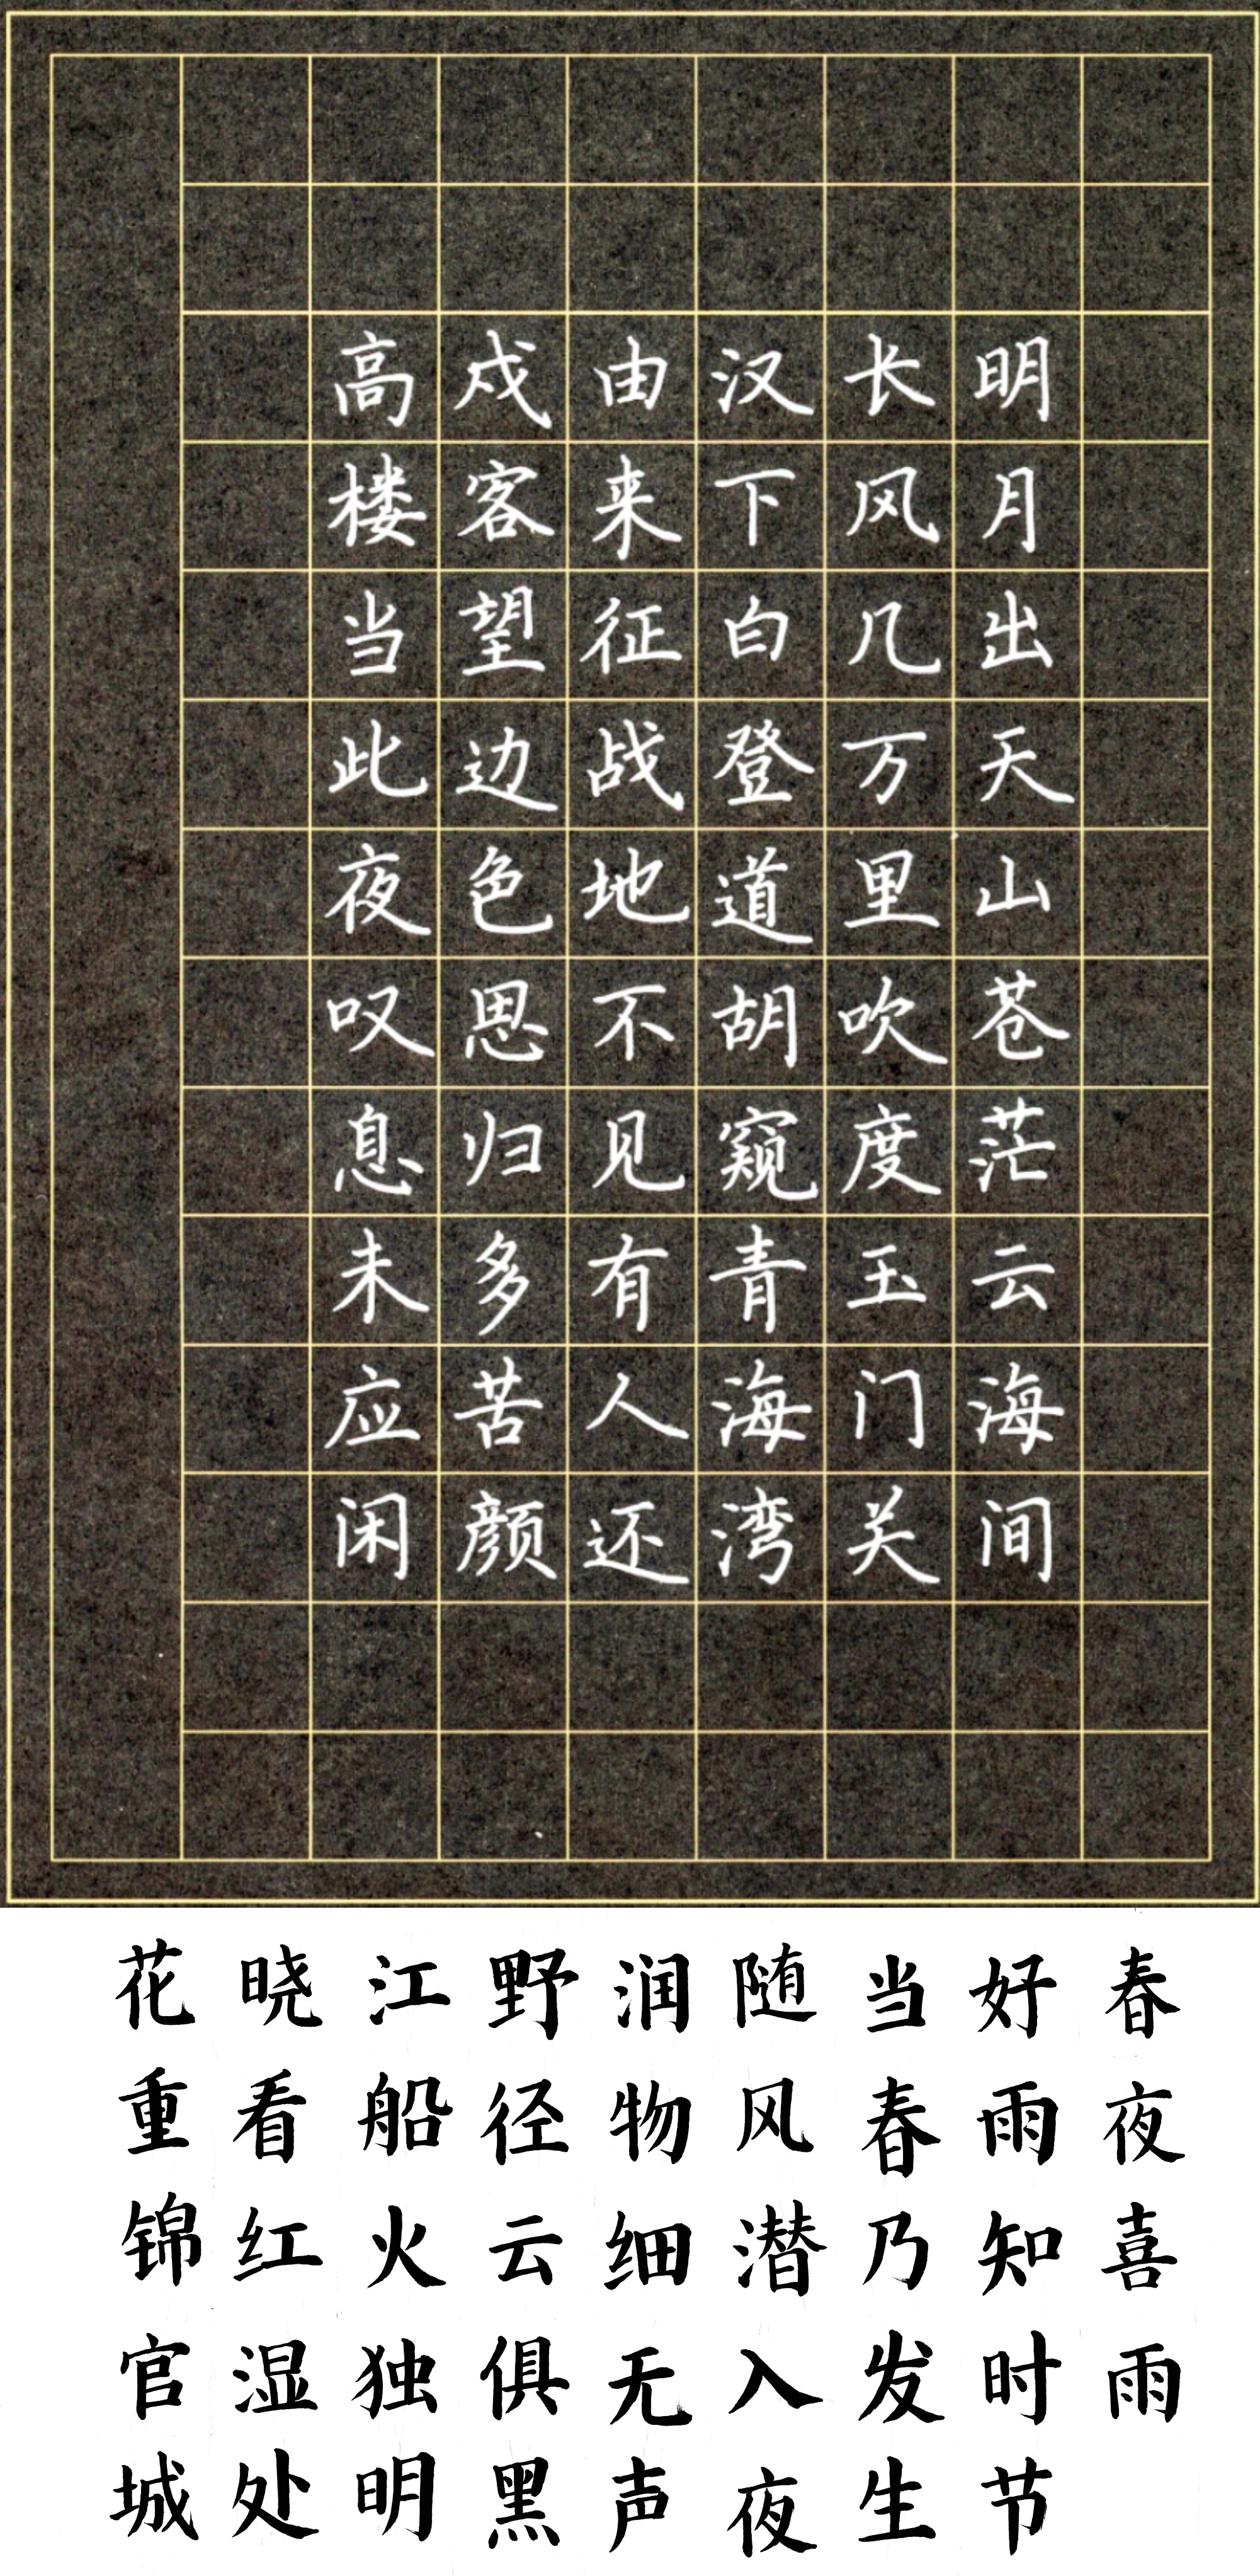 明月出天山苍茫云海间
长风几万里吹度玉门关
汉下白登道胡窥青海湾
由来征战地不见有人还
戍客望边色思归多苦颜
高楼当此夜叹息未应闲
春夜喜雨
好雨知时节
当春乃发生
随风潜入夜
润物细无声
野径云俱黑
江船火独明
晓看红湿处
花重锦官城